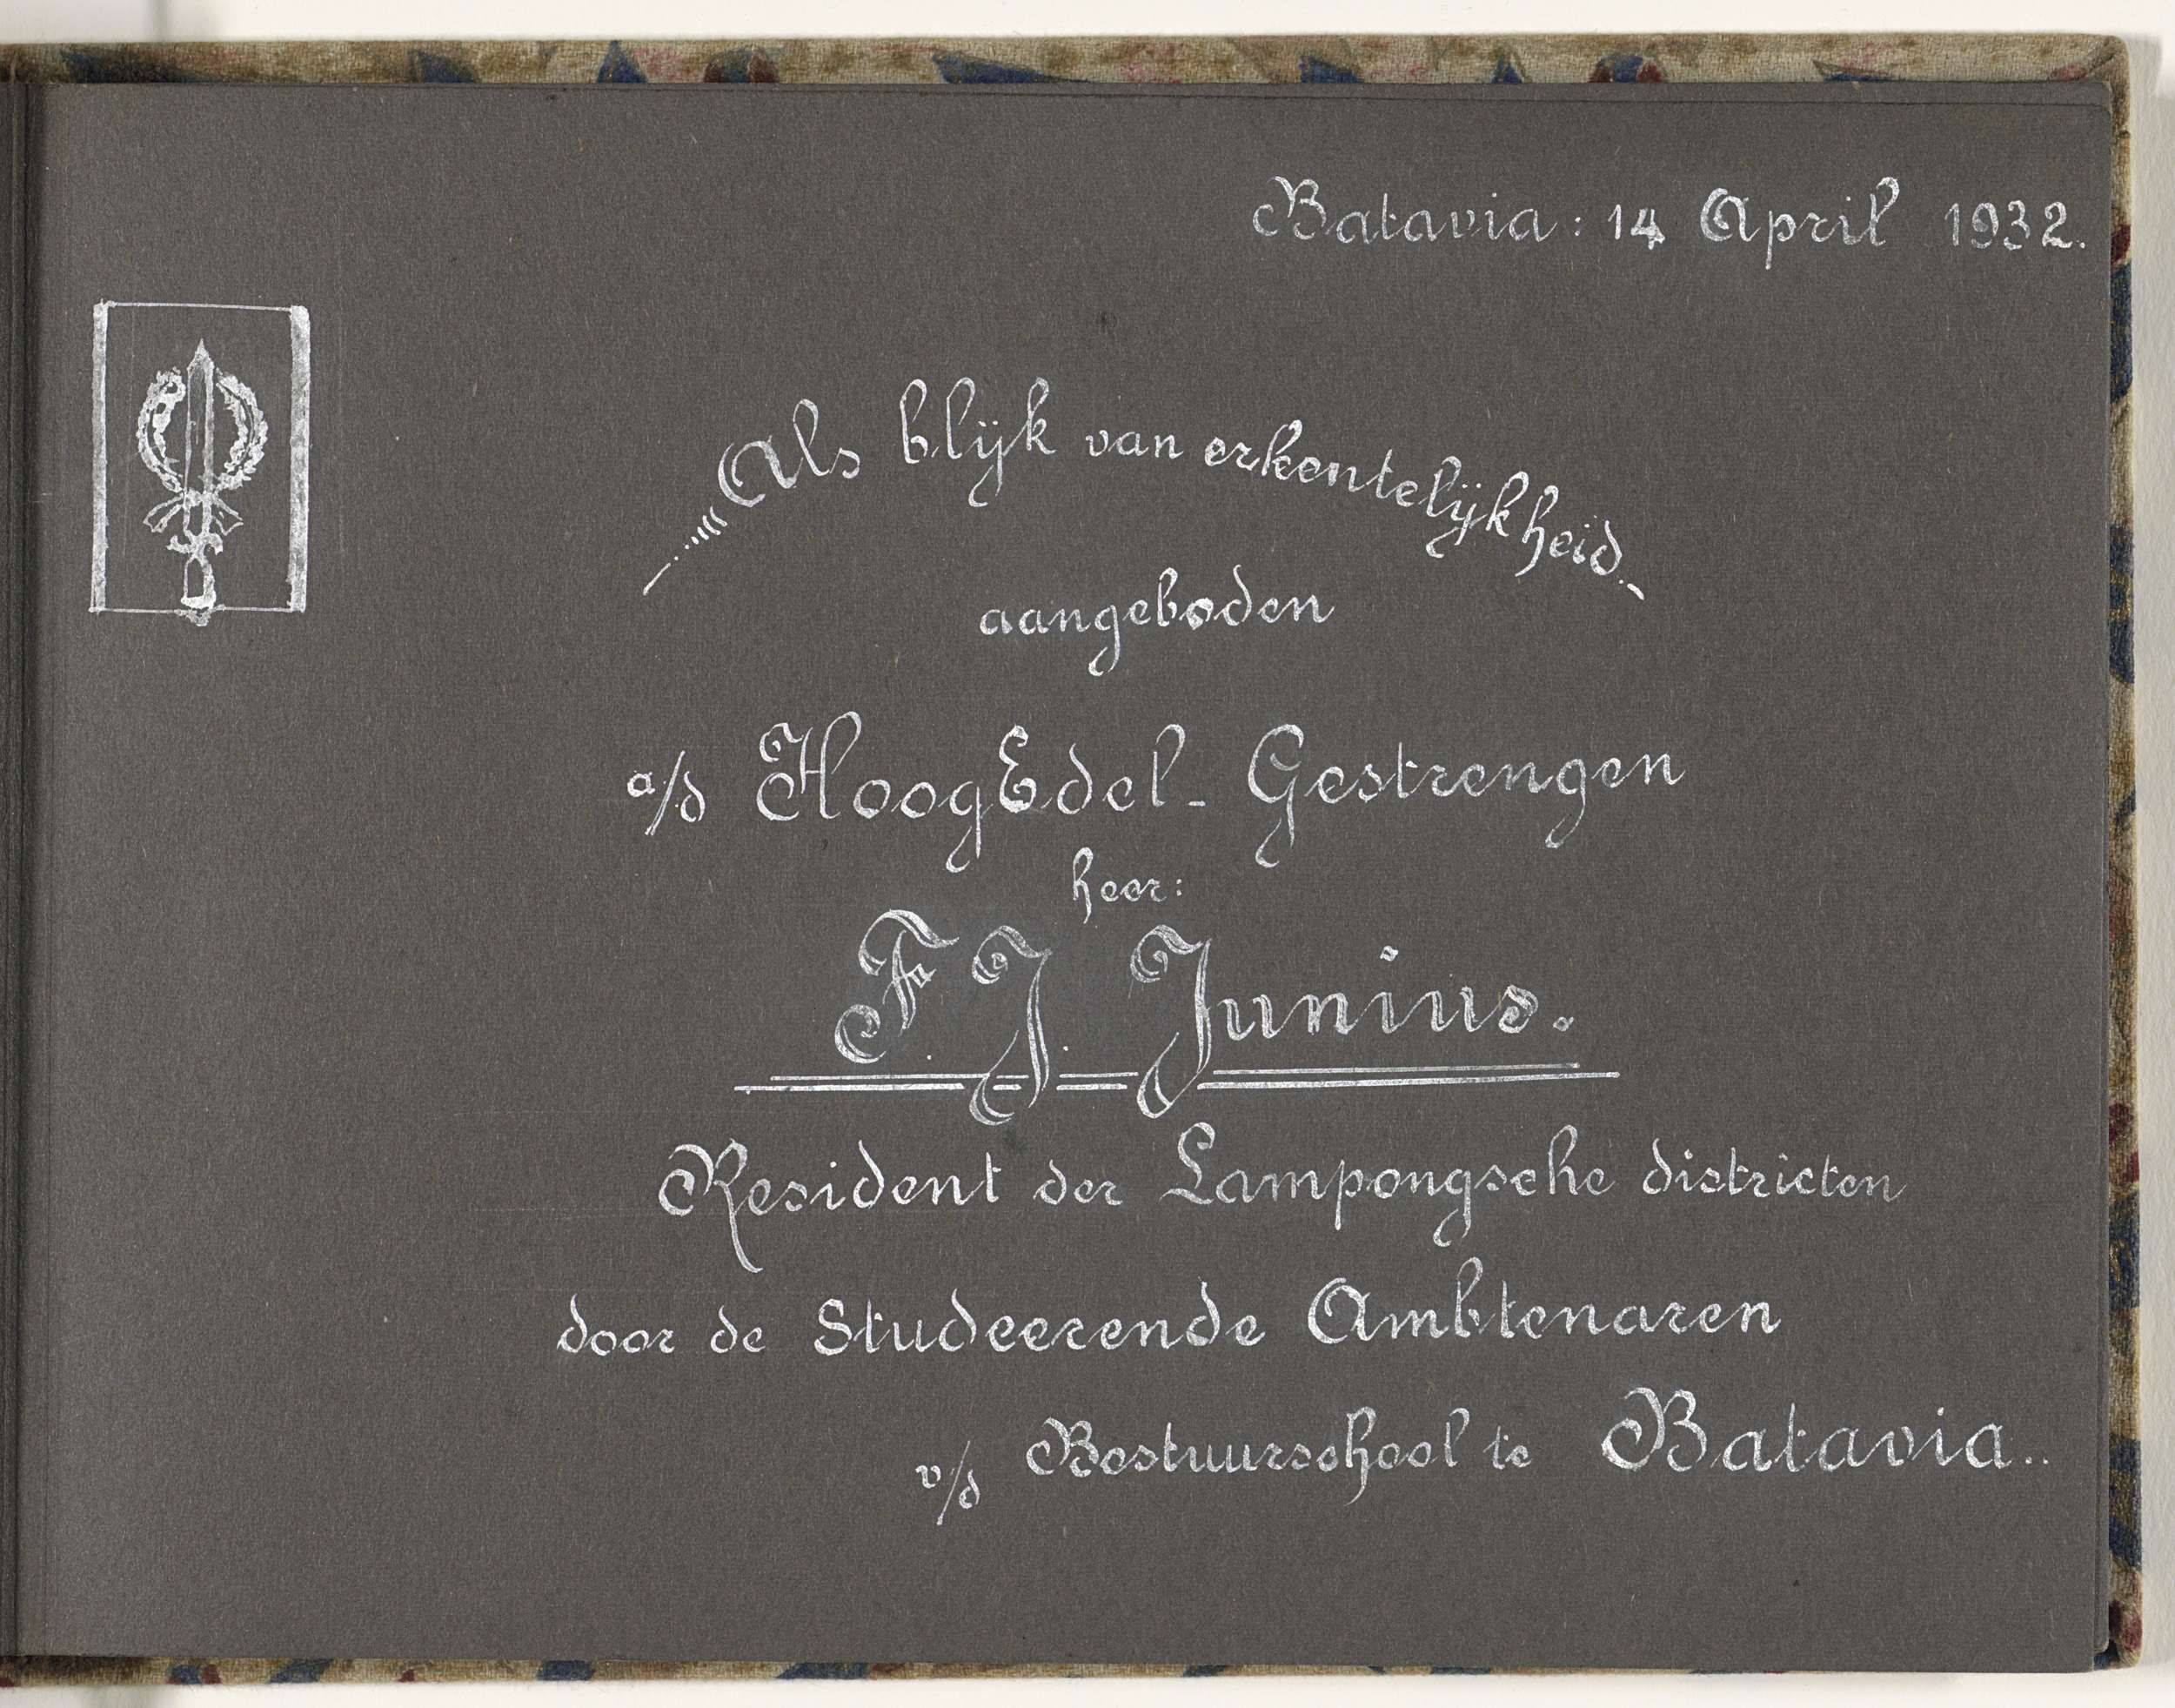 Batavia: 14 April 1932.
Als blijk van erkentelijkheid.
aangeboden
a/d HoogEdel-Gestrengen
heer:
F. J. Junius.
Resident der Lampongsche districten
door de Studeerende Ambtenaren
v/d Bestuurschool te Batavia..